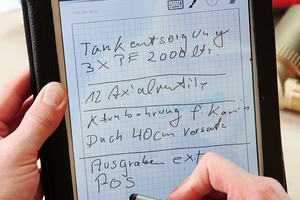 Tankentsorgung
3 x PE 2000 ltr.
12 Axialventile
Kernbohrung f. Kamin
Dach 40cm versatz
Ausgraben ext
POS